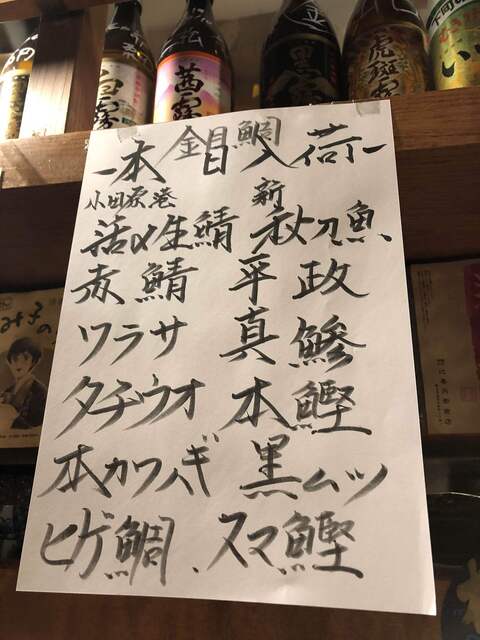 茜霧
虎斑霧
-本金目鯛入荷-
小田原港 新
活〆生鯖 秋刀魚
赤鯖 平政
ワラサ 真鯵
タチウオ 本鰹
本カワハギ 黒ムツ
ヒゲ鯛、スマ鰹